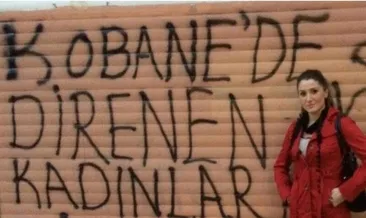 KOBANE'DE
DİRENEN
KADINLAR